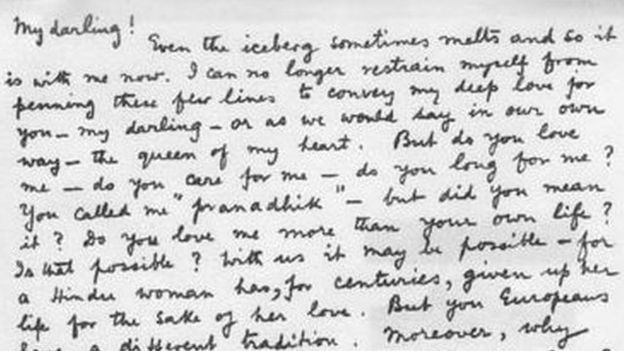 My darling!
Even the iceberg sometimes melts and so it
is with me now. I can no longer restrain myself from
penning these few lines to convey my deep love for
you – my darling – or as we would say in our own
way – the queen of my heart. But do you love
me – do you care for me – do you long for me?
You called me "pranadhik" – but did you mean
it? Do you love me more than your own life?
Is that possible? With us it may be possible – for
a Hindu woman has, for centuries, given up her
life for the sake of her love. But you Europeans
have a different tradition. Moreover, why